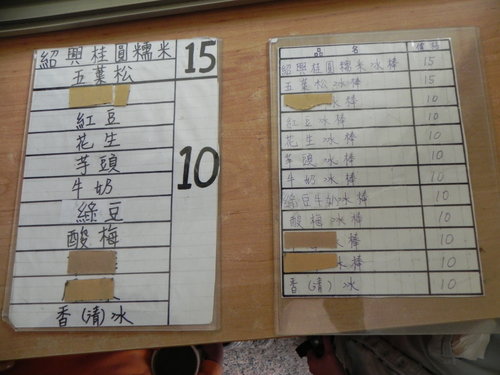 紹興桂圓糯米 15
五葉松
紅豆
花生
芋頭
牛奶 10
綠豆
酸梅
香(清)冰
品名 價格
紹興桂圓糯米冰棒 15
五葉松冰棒 15
冰棒 10
紅豆冰棒 10
花生冰棒 10
芋頭冰棒 10
牛奶冰棒 10
綠豆牛奶冰棒 10
酸梅冰棒 10
冰棒 10
冰棒 10
香(清)冰 10